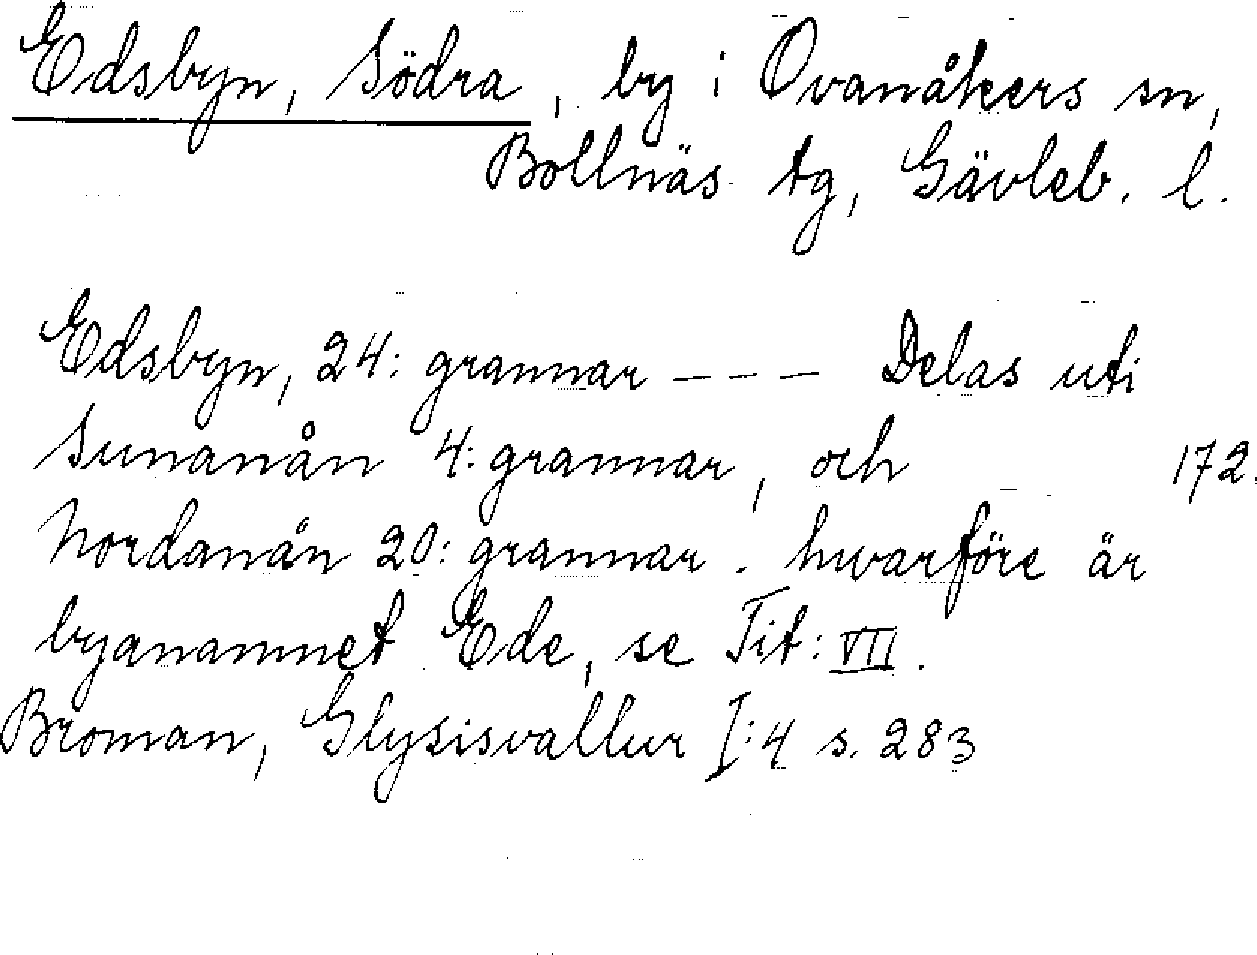 Edsbyn, Södra, by i Ovanåkers sn,
Bollnäs tg, Gävleb. l.
Edsbyn, 24: grannar --- Delas uti
Sunanån 4: grannar, och 172.
Nordanån 20: grannar. hwarföre är
byanamnet Ede, se Tit: VII.
Broman, Glysisvallur I:4 s. 283